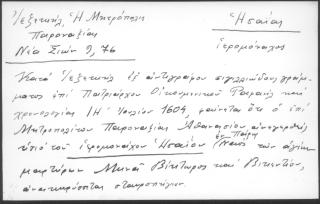 Ἱεζεκιήλ, Ἡ Μητρόπολις
Παροναξίας
Νέα Σιών 9, 76
Ἡσαΐας
ἱερομόναχος
Κατὰ Ἱεζεκιήλ ἐξ ἀντιγράφου σιγιλλιώδους γράμ-
ματος ἐπὶ Πατριάρχου Οἰκουμενικοῦ Ραφαὴλ καὶ
χρονολογίαν ΙΗ' Ἰουλίου 1604, φαίνεται ὅτι ὁ ἐπὶ
Μητροπολίτου Παροναξίας Ἀθανασίου ἀνεγερθεὶς
ὑπὸ τοῦ ἱερομονάχου Ἡσαΐου ἐν Πάρῳ (Ναὸς τῶν ἁγίων
μαρτύρων Μηνᾶ Βίκτωρος καὶ Βικεντίου,
ἀνακηρύσσεται σταυροπήγιον.